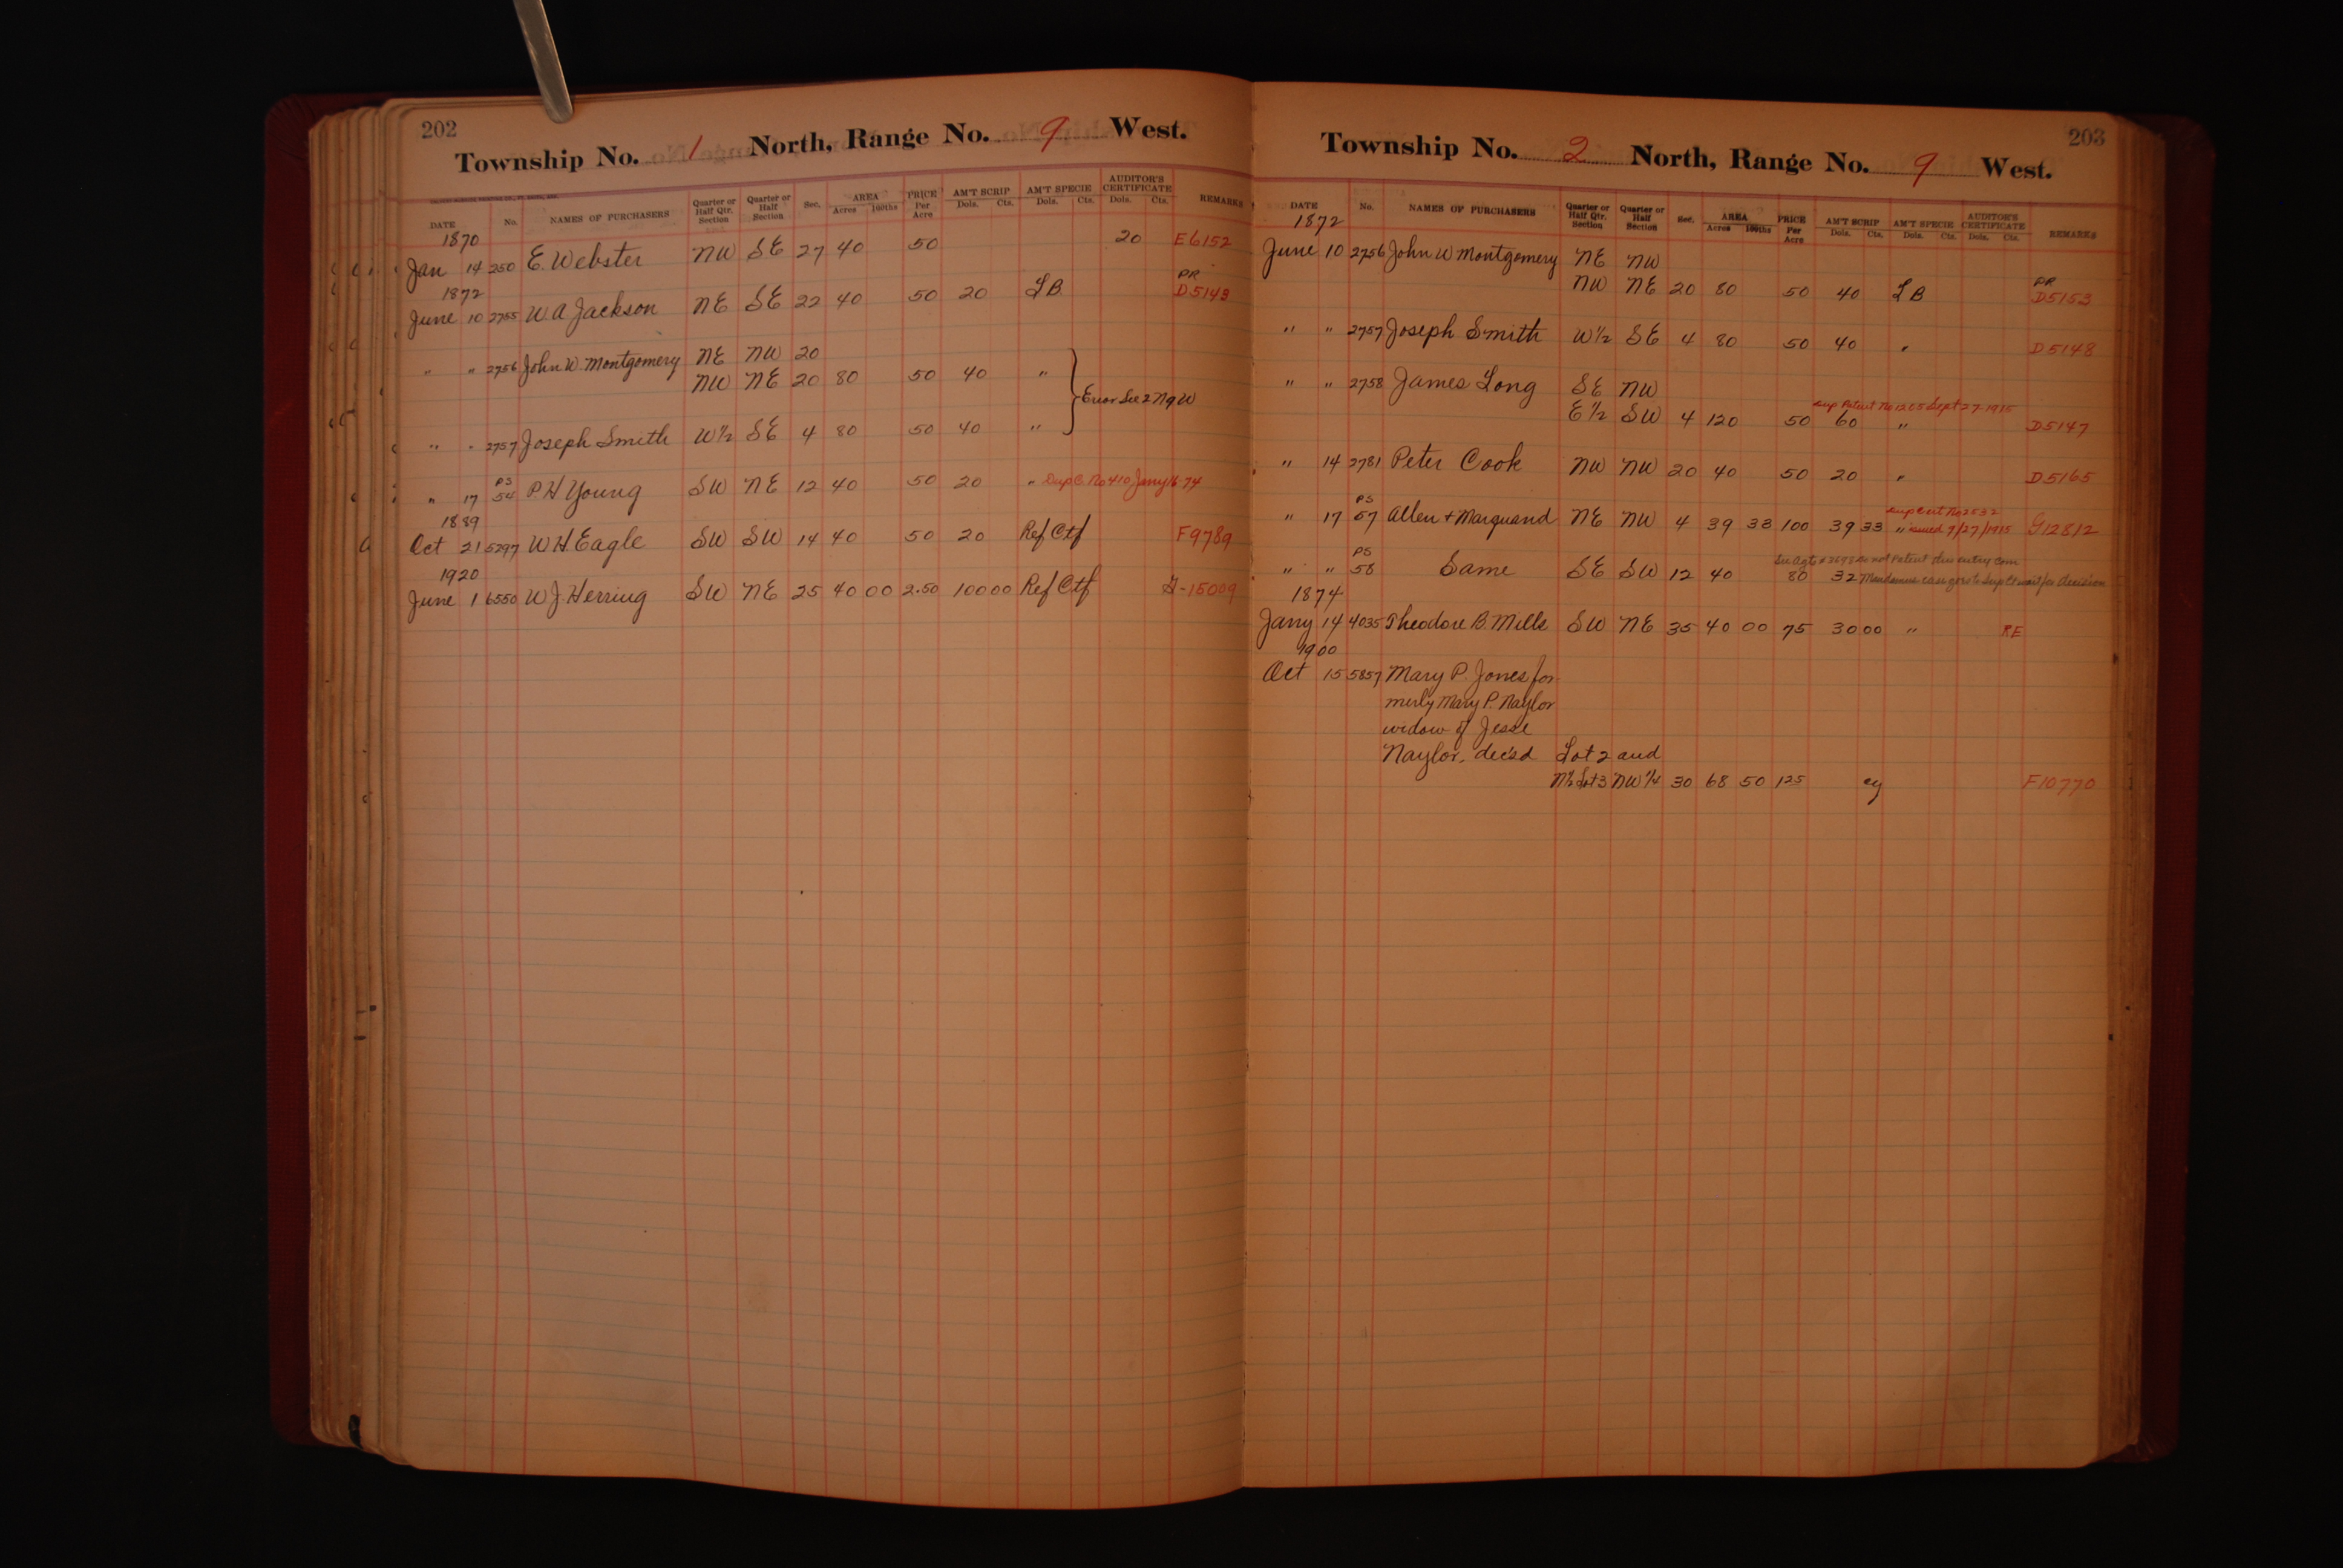 202
Township No. 1 North, Range No. 9 West.
DATE No. NAMES OF PURCHASERS Quarter or Half Qtr. Section Quarter or Half Section Sec. AREA Acres 100ths PRICE Per Acre AM'T SCRIP Dols. Cts. AM'T SPECIE Dols. Cts. AUDITOR'S CERTIFICATE Dols. Cts. REMARKS
1870
Jan 14 250 E. Webster NW SE 27 40 50 20 E6152
1872 PR
June 10 2755 W. A Jackson NE SE 22 40 50 20 L B. D5143
" " 2756 John W. Montgomery NE NW 20
NW NE 20 80 50 40 "
Error See 2 N 9 W
" " 2757 Joseph Smith W½ SE 4 80 50 40 "
PS
" 17 54 P. H Young SW NE 12 40 50 20 " Dup C. No 410 Jany 16 74
1889
Oct 21 5297 W. H. Eagle SW SW 14 40 50 20 Ref Ctf F9789
1920
June 1 6550 W. J. Herring SW NE 25 40 00 2.50 100 00 Ref Ctf G-15009
203
Township No. 2 North, Range No. 9 West.
DATE No. NAMES OF PURCHASERS Quarter or Half Qtr. Section Quarter or Half Section Sec. AREA Acres 100ths PRICE Per Acre AM'T SCRIP Dols. Cts. AM'T SPECIE Dols. Cts. AUDITOR'S CERTIFICATE Dols. Cts. REMARKS
1872
June 10 2756 John W Montgomery NE NW
PR
NW NE 20 80 50 40 L B D5153
" " 2757 Joseph Smith W½ SE 4 80 50 40 " D5148
" " 2758 James Long SE NW
Dup Patent No 1205 Sept 27-1915
E½ SW 4 120 50 60 " D5147
" 14 2781 Peter Cook NW NW 20 40 50 20 " D5165
PS Dup Cert No 2532
" 17 57 Allen + Marquand NE NW 4 39 33 100 39 33 " issued 9/27/1915 G12812
PS do not Patent this entry
" " 58 Same SE SW 12 40 80 32 Mandamus case goes to Sup Ct wait for decision
1874
Jany 14 4035 Theodore B. Mills SW NE 35 40 00 75 30 00 " RE
1900
Oct 15 5857 Mary P. Jones for
merly Mary P. Naylor
widow of Jesse
Naylor, dec'sd Lot 2 and
N½ Lot 3 NW ¼ 30 68 50 1 25 F10770